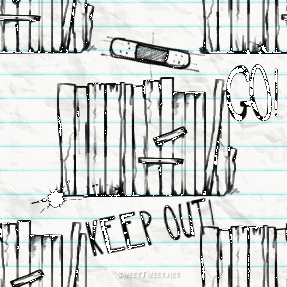 GO!
KEEP OUT!
SWEETTWEET.NET